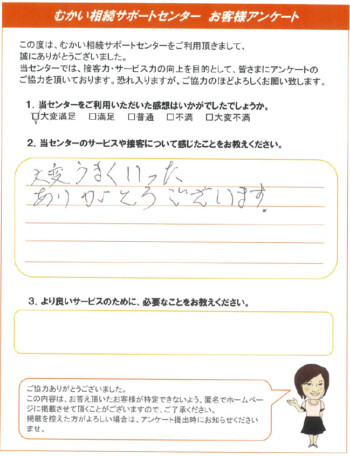 むかい相続サポートセンター お客様アンケート
この度は、むかい相続サポートセンターをご利用頂きまして、
誠にありがとうございました。
当センターでは、接客力・サービス力の向上を目的として、皆さまにアンケートの
ご協力を頂いております。恐れ入りますが、ご協力のほどよろしくお願い致します。
1. 当センターをご利用いただいた感想はいかがでしたでしょうか。
☑大変満足 □満足 □普通 □不満 □大変不満
2. 当センターのサービスや接客について感じたことをお教えください。
大変うまくいった
ありがとうございます。
3. より良いサービスのために、必要なことをお教えください。
ご協力ありがとうございました。
この内容は、お答え頂いたお客様が特定できないよう、匿名でホームペー
ジに掲載させて頂くことがございますので、ご了承ください。
掲載を控えた方がよろしい場合は、アンケート提出時にお知らせください
ませ。